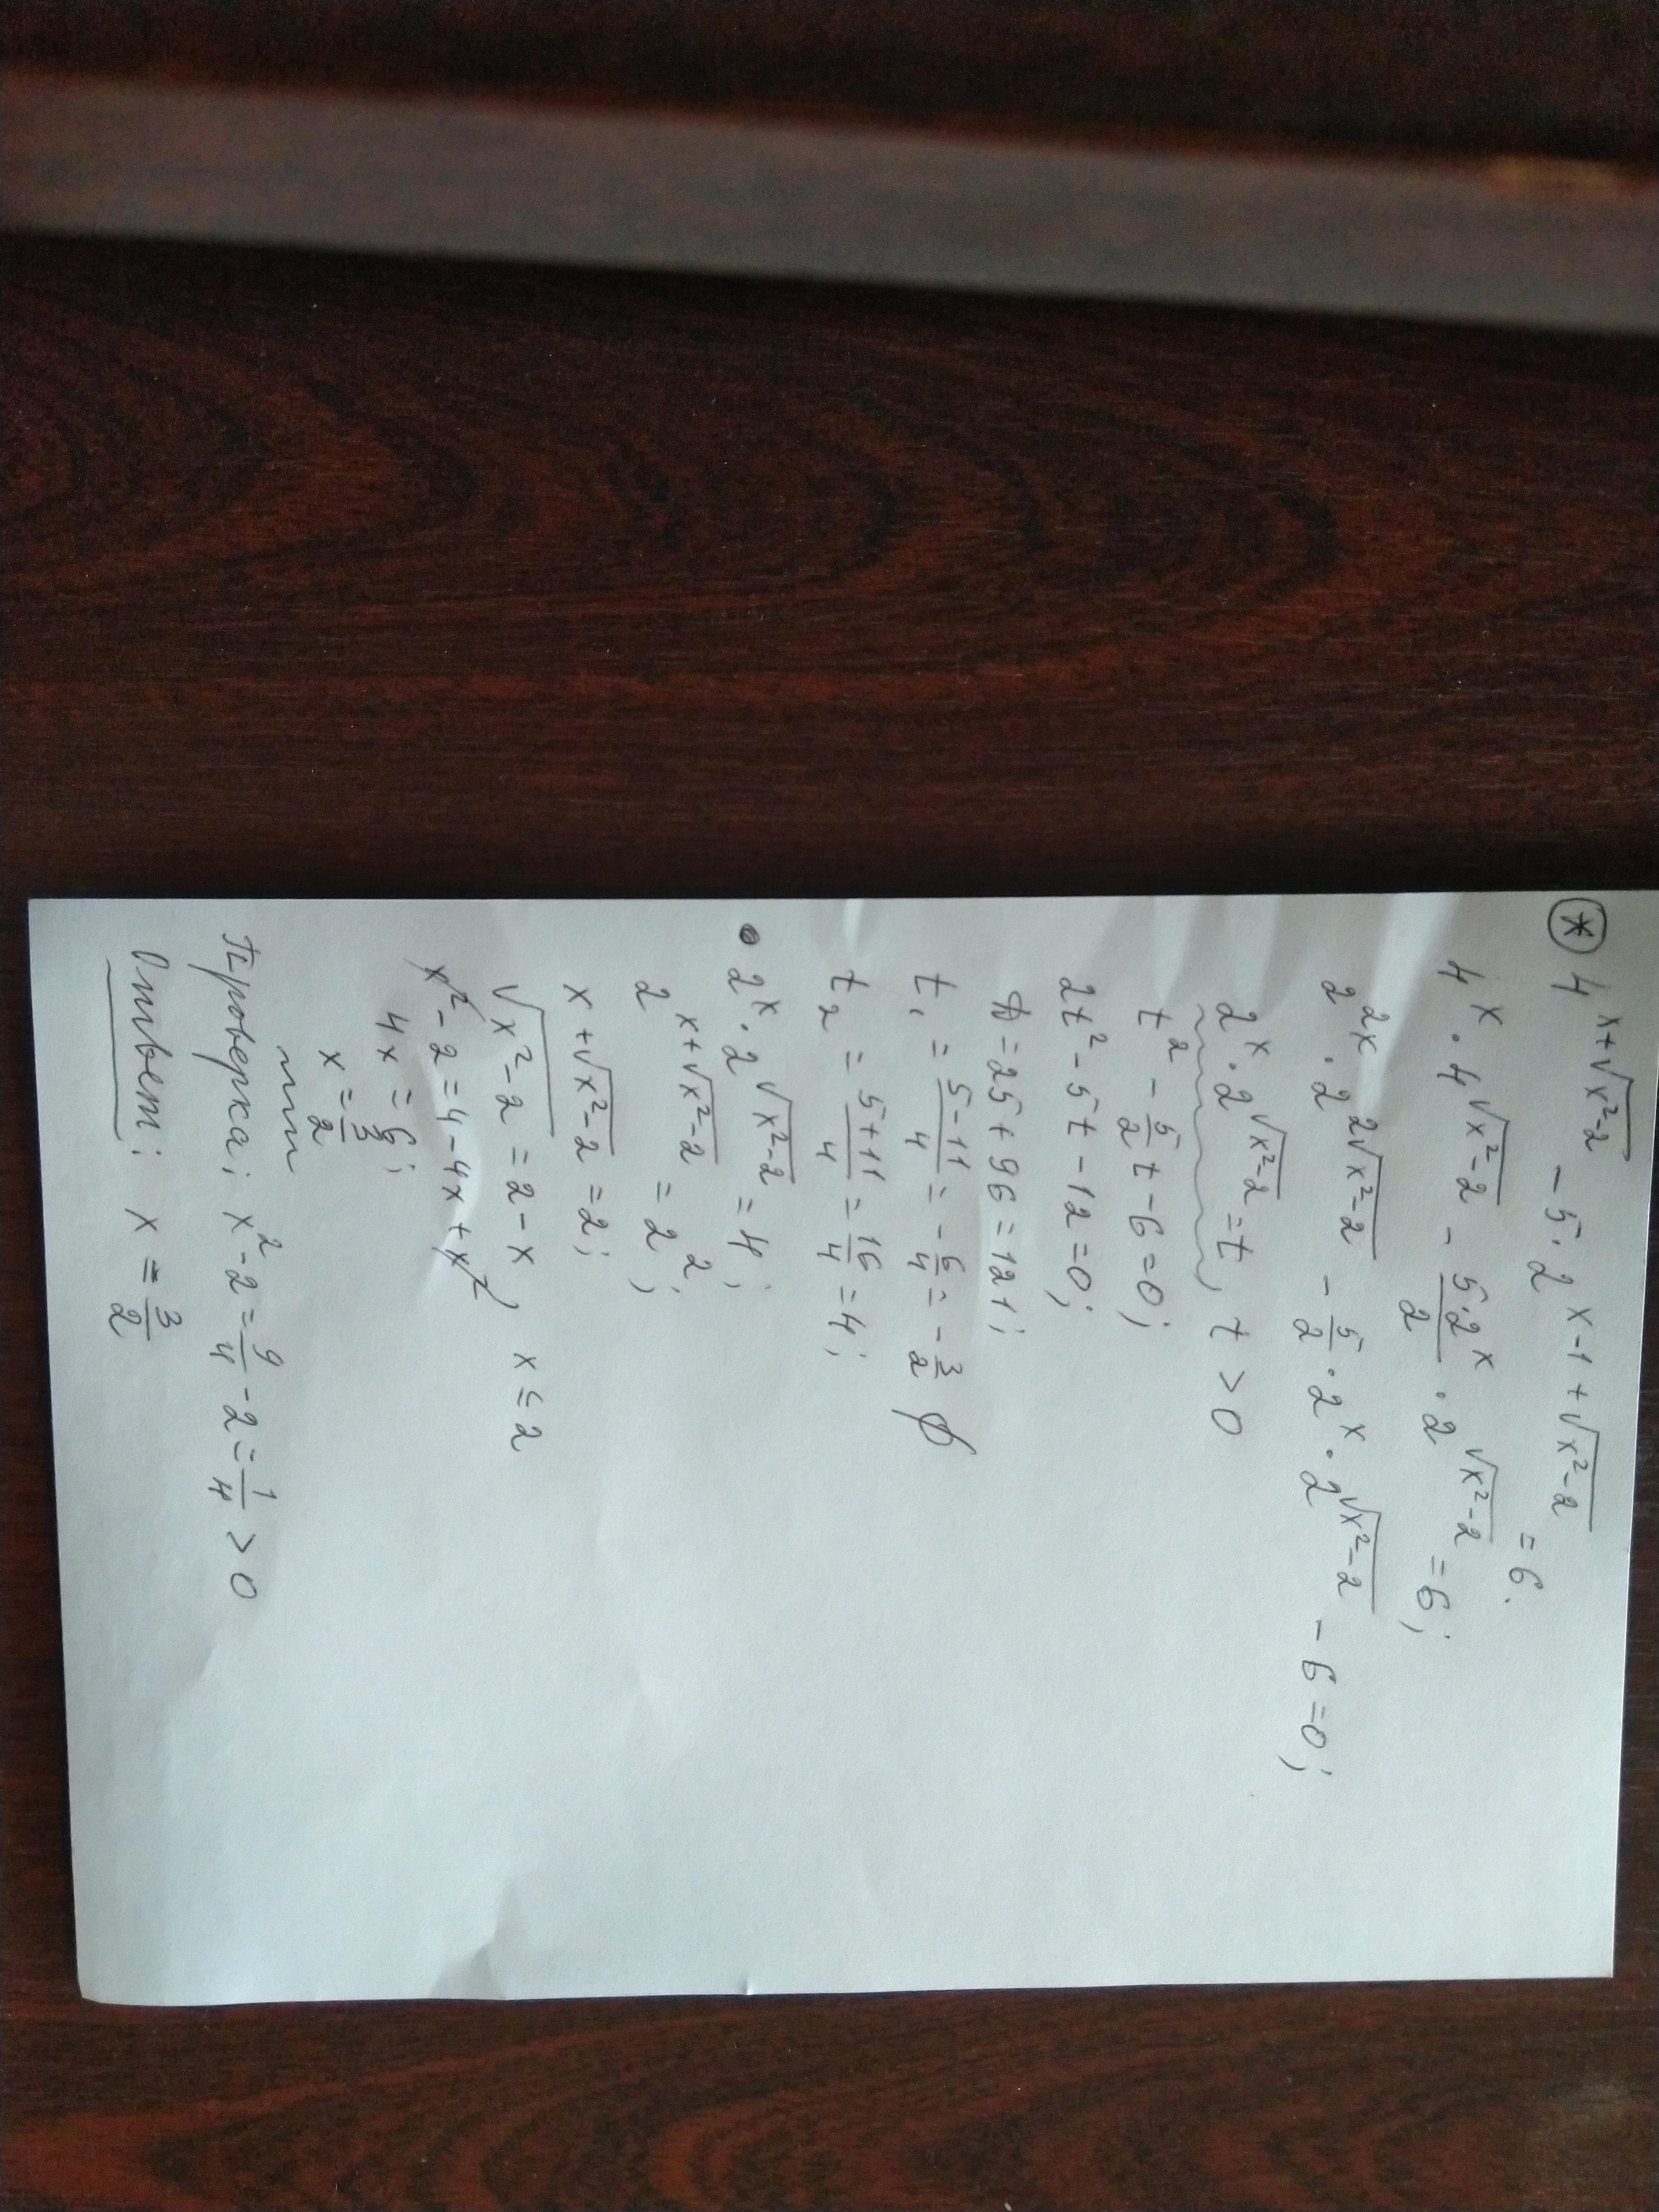 (*) 4^{x+√(x²-2)} - 5·2^{x-1+√(x²-2)} = 6.
4^x · 4^{√(x²-2)} - (5·2^x)/2 · 2^{√(x²-2)} = 6;
2^{2x} · 2^{2√(x²-2)} - 5/2 · 2^x · 2^{√(x²-2)} - 6 = 0;
2^x · 2^{√(x²-2)} = t, t > 0
t² - 5/2 t - 6 = 0;
2t² - 5t - 12 = 0;
D = 25 + 96 = 121;
t₁ = (5-11)/4 = -6/4 = -3/2 ∅
t₂ = (5+11)/4 = 16/4 = 4;
• 2^x · 2^{√(x²-2)} = 4;
2^{x+√(x²-2)} = 2²;
x + √(x²-2) = 2;
√(x²-2) = 2 - x, x ≤ 2
x² - 2 = 4 - 4x + x²
4x = 6;
x = 3/2
Проверка: x² - 2 = 9/4 - 2 = 1/4 > 0
Ответ: x = 3/2